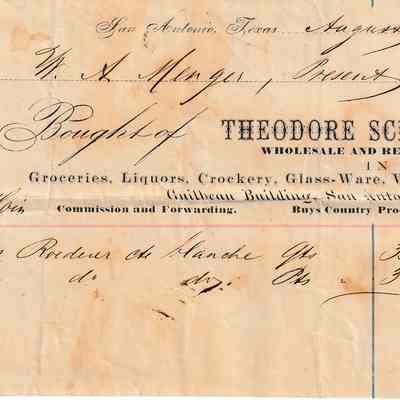 San Antonio, Texas August
W. A. Menger, Present
Bought of THEODORE SC
WHOLESALE AND RE
IN
Groceries, Liquors, Crockery, Glass-Ware, W
Guilbeau Building, San Anto
Commission and Forwarding. Buys Country Pro
Roederer cte blanche Qts 3
do do Pts 3